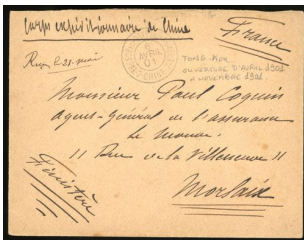 Corps expéditionnaire de Chine
France
AVRIL
01
Reçu le 21 mai
TONG-KOU
OUVERTURE D'AVRIL 1901
A NOVEMBRE 1901
Monsieur Paul Coquin
agent-Général de l'assurance
Le Monde.
11 Rue de la Villeneuve 11
Morlaix
Finistère